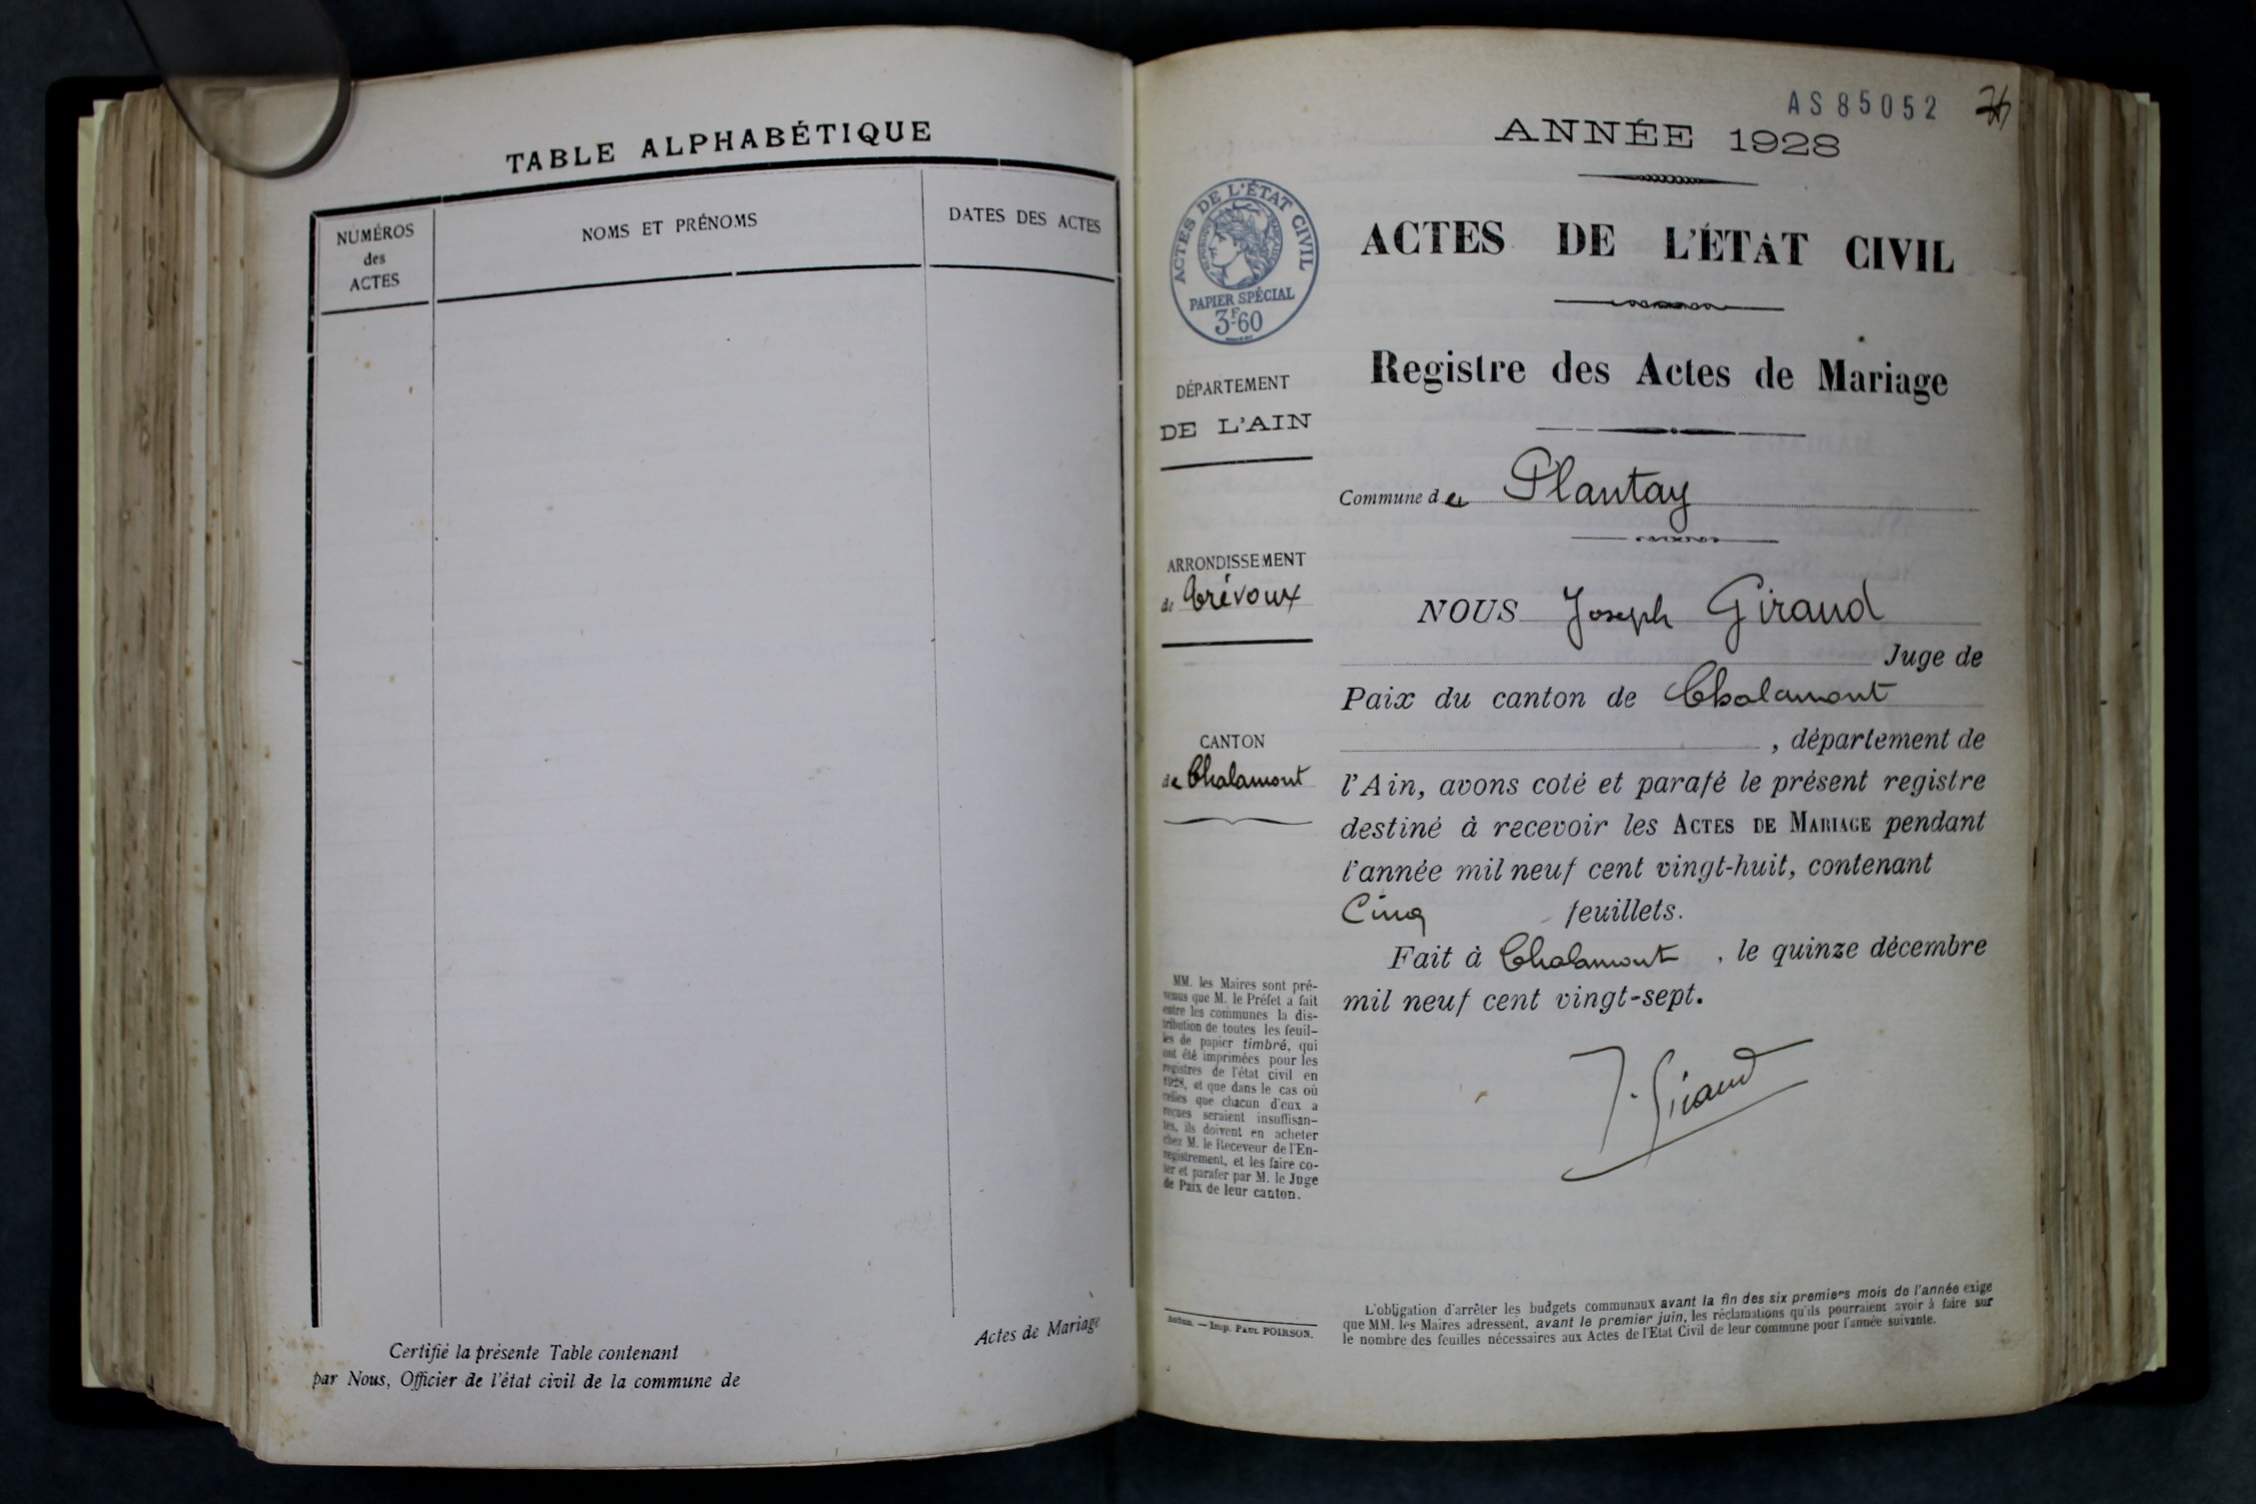 TABLE ALPHABÉTIQUE
NUMÉROS
des
ACTES
NOMS ET PRÉNOMS
DATES DES ACTES
Certifié la présente Table contenant
par Nous, Officier de l'état civil de la commune de
Actes de Mariage
AS 85052
ANNÉE 1928
ACTES DE L'ÉTAT CIVIL
PAPIER SPÉCIAL
3F60
ACTES DE L'ÉTAT CIVIL
Registre des Actes de Mariage
DÉPARTEMENT
DE L'AIN
ARRONDISSEMENT
de Trévoux
CANTON
de Chalamont
MM. les Maires sont pré-
venus que M. le Préfet a fait
entre les communes la dis-
tribution de toutes les feuil-
les de papier timbré, qui
ont été imprimées pour les
registres de l'état civil en
1928, et que dans le cas où
celles que chacun d'eux a
reçues seraient insuffisan-
tes, ils doivent en acheter
chez M. le Receveur de l'En-
registrement, et les faire co-
ter et parafer par M. le Juge
de Paix de leur canton.
Autun. — Imp. PAUL POIRSON.
Commune de Plantay
NOUS Joseph Giraud
Juge de
Paix du canton de Chalamont
, département de
l'Ain, avons coté et parafé le présent registre
destiné à recevoir les ACTES DE MARIAGE pendant
l'année mil neuf cent vingt-huit, contenant
Cinq feuillets.
Fait à Chalamont, le quinze décembre
mil neuf cent vingt-sept.
J. Giraud
L'obligation d'arrêter les budgets communaux avant la fin des six premiers mois de l'année exige
que MM. les Maires adressent, avant le premier juin, les réclamations qu'ils pourraient avoir à faire sur
le nombre des feuilles nécessaires aux Actes de l'Etat Civil de leur commune pour l'année suivante.